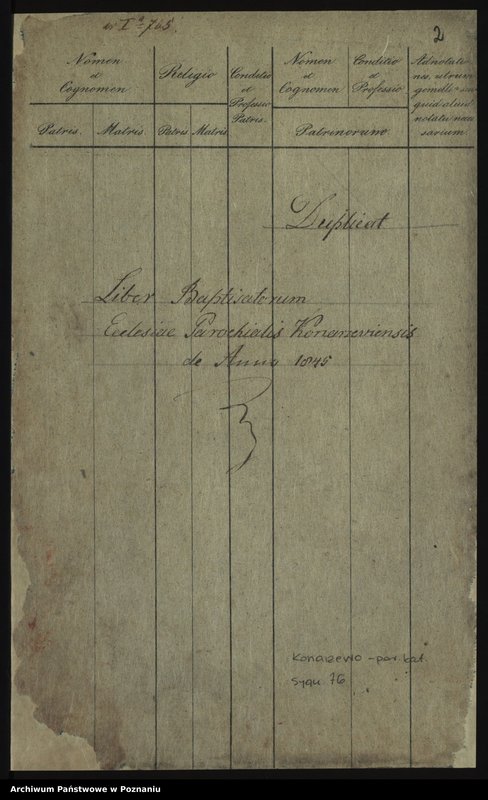 nr I a 765.
2
Nomen et Cognomen
Religio
Conditio et Professio Patris.
Nomen et Cognomen
Conditio et Professio
Adnotatio
nes, utrum
gemelli
quid aliud
notatu nece
sarium.
Patris. Matris. Patris Matris.
Patrinorum
Duplicat
Liber Baptisatorum
Ecclesiae Parochialis Konarzeviensis
de Anno 1845
Konarzewo - par. kat.
Sygn. 76
Archiwum Państwowe w Poznaniu